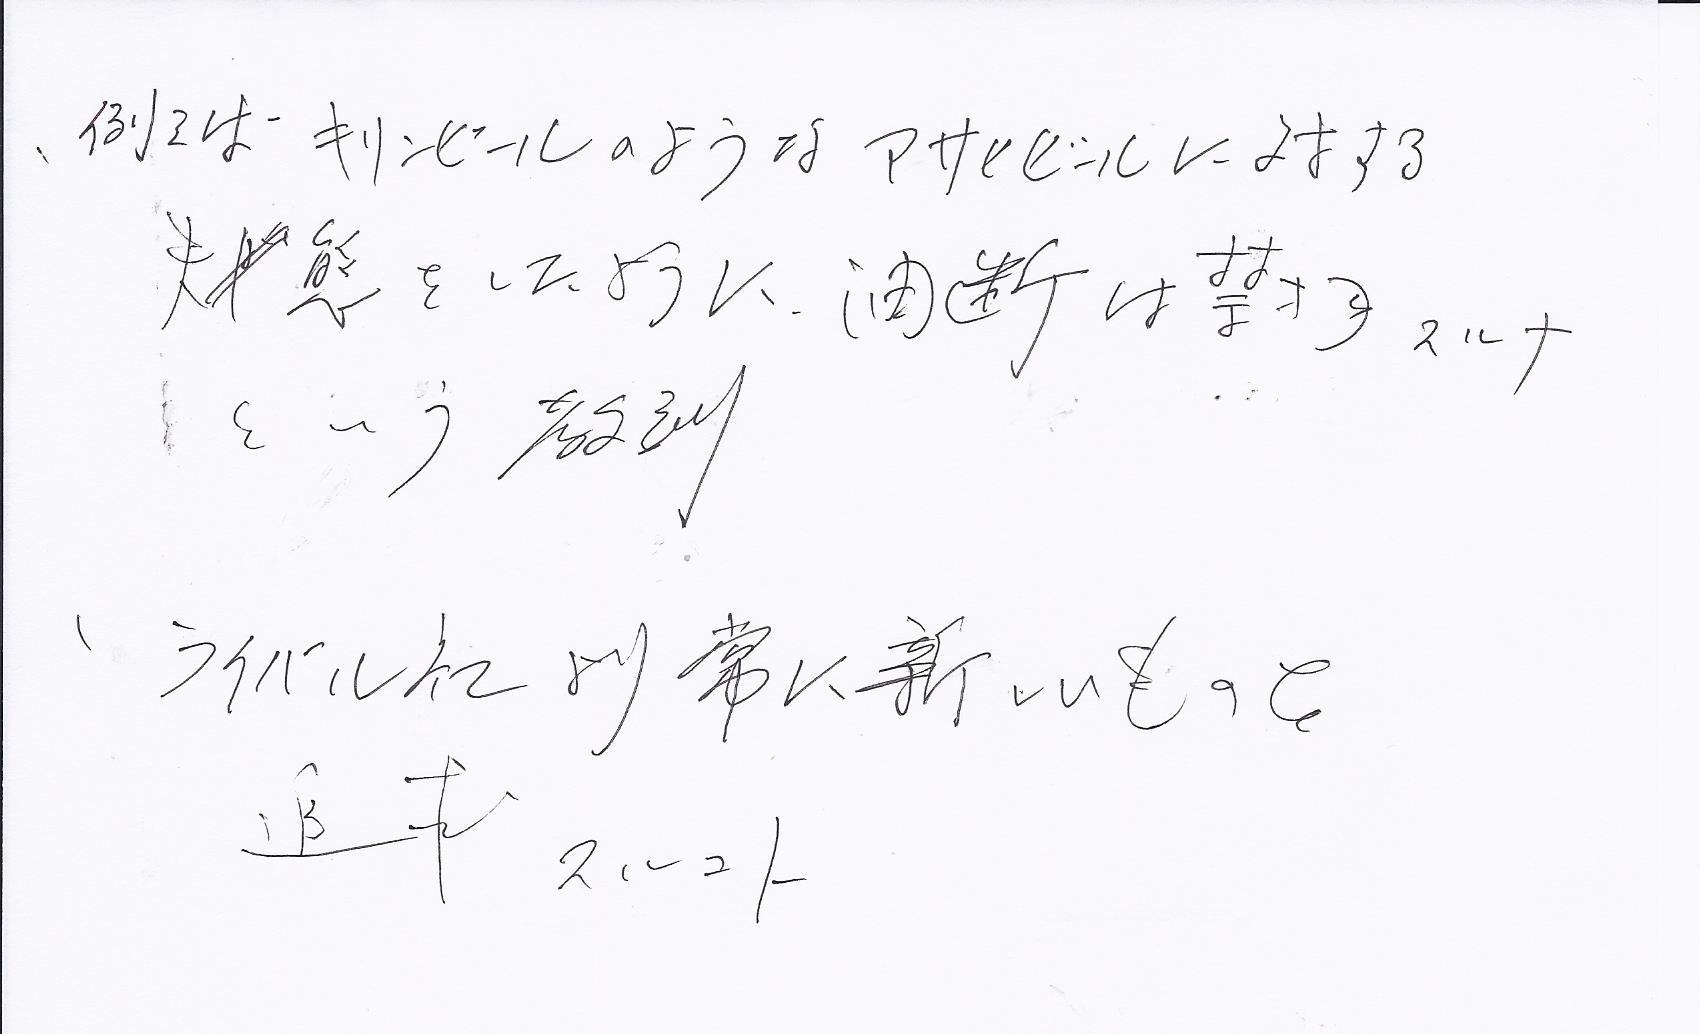 、例えば キリンビールのような アサヒビールに対する
失態をしたように、油断は禁ずる スルナ
という 教訓
、ライバル社より常に新しいものを
追求 スルコト